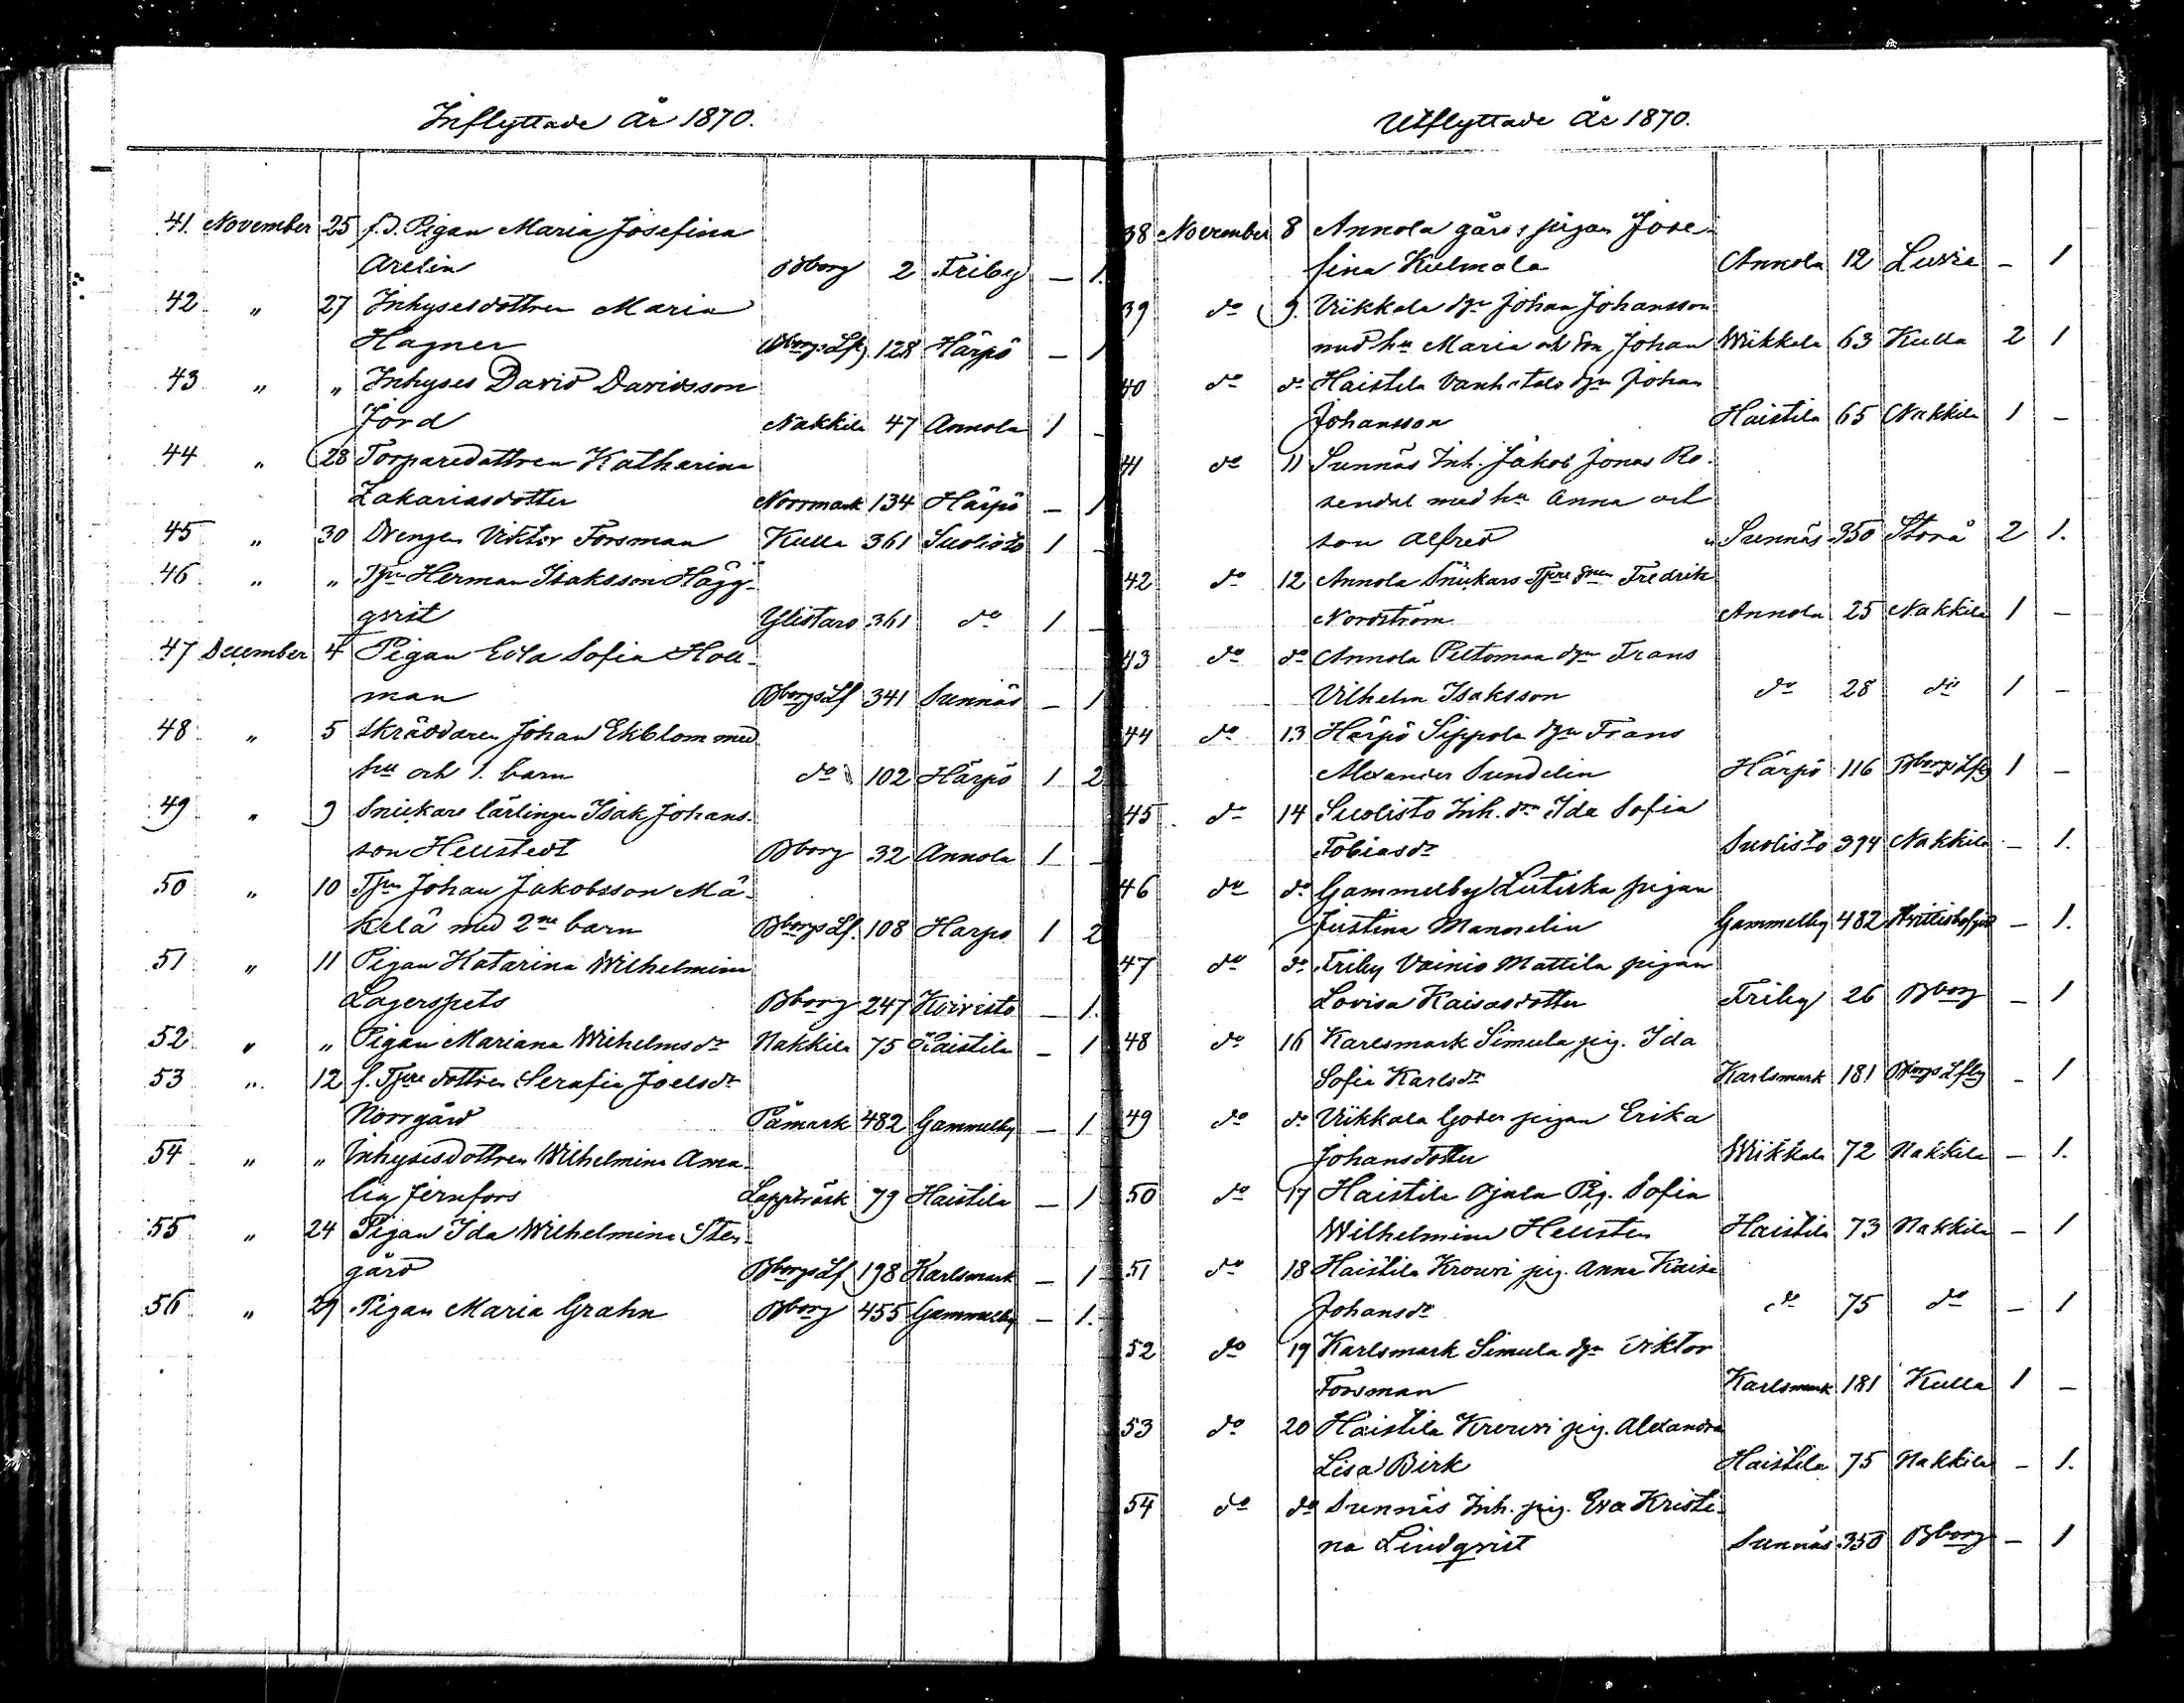 Inflyttade År 1870.
41. November 25 f.d. Pigan Maria Josefina
Arelin Bborg 2 Friby — 1.
42 " 27 Inhysesdottren Maria
Hagner Bborgs Lfg 128 Härpö — 1
43 " " Inhyses David Davidsson
Jord Nakkila 47 Annola 1 —
44 " 28 Torparedottren Katharina
Zakariasdotter Norrmark 134 Härpö — 1
45 " 30 Drengen Viktor Forsman Kulla 361 Suolisto 1 —
46 " " Tjn Herman Isaksson Hägg-
qvist Ylistaro 361 do 1 —
47 December 4 Pigan Edla Sofia Holl-
man Bborgs Lf 341 Sunnäs — 1
48 " 5 Skräddaren Johan Ekblom med
hu och 1. barn do 102 Härpö 1 2
49 " 9 Snickare lärlingen Isak Johans-
son Hellstedt Bborg 32 Annola 1 —
50 " 10 Tjn Johan Jakobsson Mä-
kelä med 2ne barn Bborgs Lf. 108 Harpo 1 2
51 " 11 Pigan Katarina Wilhelmina
Lagerspets Bborg 247 Koivisto — 1.
52 " " Pigan Mariana Wilhelmsdr Nakkila 75 Haistila — 1
53 " 12 f. Tjre dottren Serafia Joelsdr
Norrgård Påmark 482 Gammelby — 1
54 " " Inhysesdottren Wilhelmina Ama-
lia Jernfors Lappträsk 79 Haistila — 1
55 " 24 Pigan Ida Wilhelmina Sten-
gård Bborgs Lf 198 Karlsmark — 1
56 " 29 Pigan Maria Grahn Bborg 455 Gammelby — 1.
Utflyttade År 1870.
38 November 8 Annola gårds pigan Jose-
fina Kulmala Annola 12 Luvia — 1
39 do 9. Viikkala dgn Johan Johansson
med hu Maria och son Johan Wiikkala 63 Kulla 2 1
40 do do Haistila Vanhatalo dgn Johan
Johansson Haistila 65 Nakkila 1 —
41 do 11 Sunnäs Inh. Jakob Jonas Ro-
sendal med hu Anna och
son Alfred Sunnäs 350 Storå 2 1.
42 do 12 Annola Snickars Tjre Fredrik
Nordström Annola 25 Nakkila 1 —
43 do do Annola Peltomaa dgn Frans
Vilhelm Isaksson do 28 do 1 —
44 do 13 Härpö Sippola dgn Frans
Alexander Sundelin Härpö 116 Bborgs Lfg 1 —
45 do 14 Suolisto Inh. dr Ida Sofia
Tobiasdr Suolisto 394 Nakkila — 1.
46 do do Gammelby Lutiska pigan
Justina Mannelin Gammelby 482 — 1.
47 do do Friby Vainio Mattila pigan
Lovisa Kaisasdotter Friby 26 Bborg — 1
48 do 16 Karlsmark Simula pig. Ida
Sofia Karlsdr Karlsmark 181 Bborgs Lfg — 1
49 do do Viikkala Goder pigan Erika
Johansdotter Wiikkala 72 Nakkila — 1.
50 do 17 Haistila Ojala Pig. Sofia
Wilhelmina Hellsten Haistila 73 Nakkila — 1
51 do 18 Haistila Krouvi pig. Anna Kaisa
Johansdr do 75 do — 1
52 do 19 Karlsmark Simula dgn Viktor
Forsman Karlsmark 181 Kulla 1 —
53 do 20 Haistila Krouvi pig. Alexandra
Lisa Birk Haistila 75 Nakkila — 1.
54 do do Sunnäs Inh. pig. Eva Kristi-
na Lindqvist Sunnäs 350 Bborg — 1